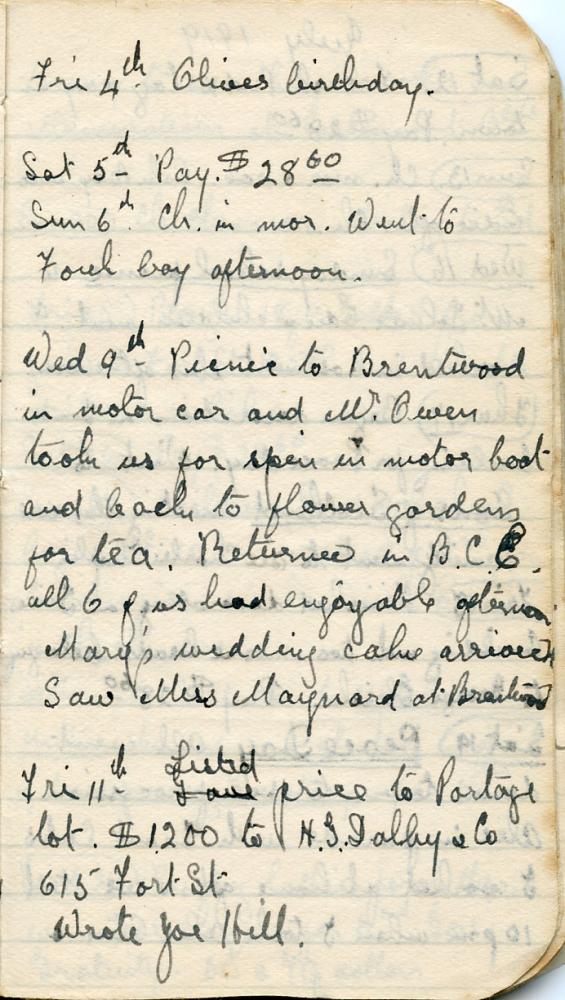 Fri 4th Olives birthday.
Sat 5th Pay. $28 60
Sun 6th Ch. in mor. Went to
Foul bay afternoon.
Wed 9th Picnic to Brentwood
in motor car and Mr. Owen
took us for spin in motor boat
and back to flower gardens
for tea. Returned in B.C.E.
all 6 of us had enjoyable afternoon
Mary's wedding cake arrived
Saw Miss Maynard at Brentwood
Listed
Fri 11th Gave price to Portage
lot. $1200 to H.G. Dalby & Co
615 Fort St
Wrote Joe Hill.